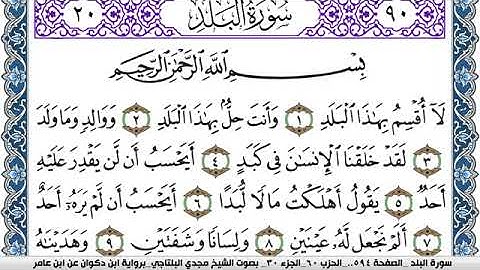 ٩٠ سُورَةُ الْبَلَدِ ٢٠
بِسْمِ اللَّهِ الرَّحْمَٰنِ الرَّحِيمِ
لَآ أُقْسِمُ بِهَٰذَا الْبَلَدِ ١ وَأَنتَ حِلٌّ بِهَٰذَا الْبَلَدِ ٢ وَوَالِدٍ وَمَا وَلَدَ
٣ لَقَدْ خَلَقْنَا الْإِنسَٰنَ فِي كَبَدٍ ٤ أَيَحْسَبُ أَن لَّن يَقْدِرَ عَلَيْهِ
أَحَدٌ ٥ يَقُولُ أَهْلَكْتُ مَالًا لُّبَدًا ٦ أَيَحْسَبُ أَن لَّمْ يَرَهُۥٓ أَحَدٌ
٧ أَلَمْ نَجْعَل لَّهُۥ عَيْنَيْنِ ٨ وَلِسَانًا وَشَفَتَيْنِ ٩ وَهَدَيْنَٰهُ
سورة البلد _الصفحة ٥٩٤.. الحزب ٦٠_الجزء ٣٠_ بصوت الشيخ مجدي البلتاجي_برواية ابن ذكوان عن ابن عامر